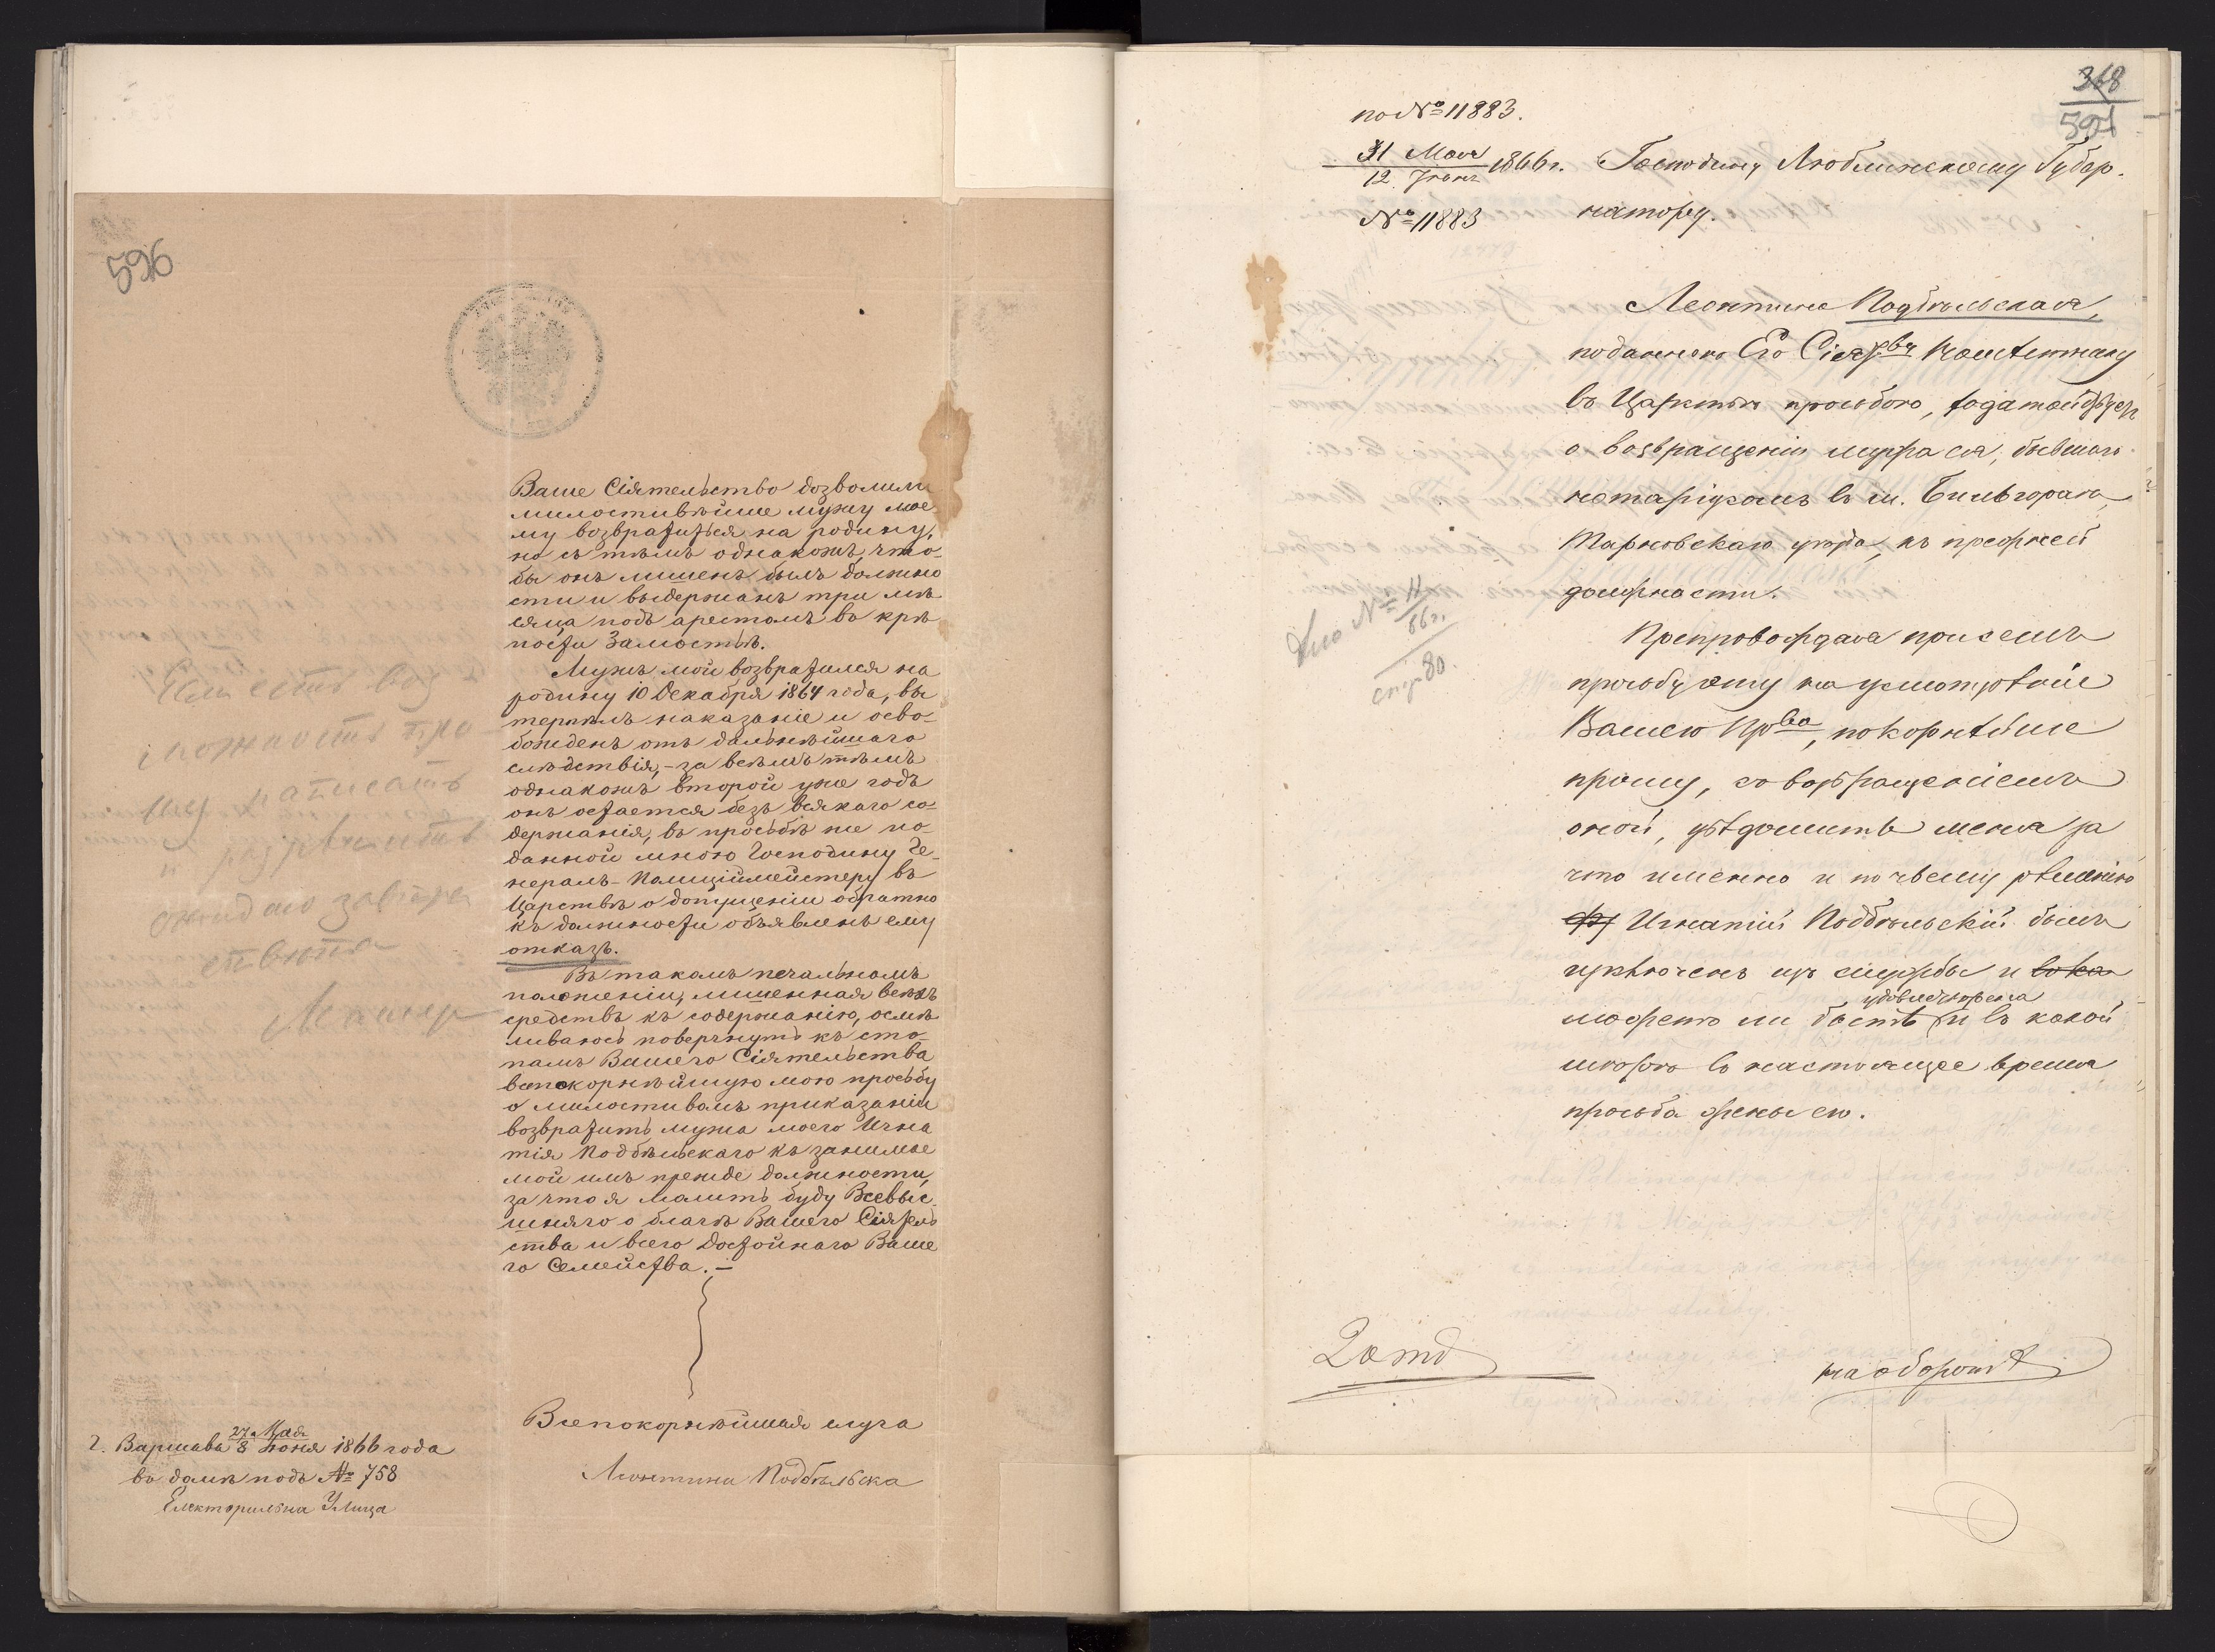 596
Ваше Сіятельство дозволили
милостивѣйше мужу мое
му возвратиться на родину,
но съ тѣмъ однакожъ, что-
бы онъ лишенъ былъ должно
сти и выдержанъ три мѣ
сяца подъ арестомъ въ крѣ
пости Замостьѣ.
Мужъ мой возвратился на
родину 10 Декабря 1864 года, вы
терпѣлъ наказаніе и осво-
божденъ отъ дальнѣйшаго
слѣдствія,- за всѣмъ тѣмъ
однакожъ второй уже годъ
онъ остается безъ всякаго со-
держанія, въ просьбѣ же по-
данной мною Господину Ге-
нералъ-Полиціймейстеру въ
Царствѣ о допущеніи обратно
къ должности объявленъ ему
отказъ.
Въ такомъ печальномъ
положеніи, лишенная всѣхъ
средствъ къ содержанію, осмѣ
ливаюсь повергнуть къ сто-
памъ Вашего Сіятельства
всепокорнѣйшую мою просьбу
о милостивомъ приказаніи
возвратить мужа моего Игна
тія Подбѣльскаго къ занимае
мой имъ прежде должности,
за что я молить буду Всевыс
шняго о благѣ Вашего Сіятель
ства и всего Достойнаго Ваше
го Семейства.-
Всепокорнѣйшая слуга
Леонтина Подбѣльска
Если есть воз
можность про
шу написать
и разрѣшить
ожидаю завтра
г. Варшава 27 Мая 8 Іюня 1866 года
въ домѣ подъ № 758
Електоральна Улица
368
591
по № 11883.
31 Мая
12 Іюня 1866 г.
№ 11883
Господину Люблинскому Губер-
натору.
Леонтина Подбѣльская,
поданною Его Сіят-ву Намѣстнику
въ Царствѣ просьбою, ходатайствуетъ
о возвращеніи мужа ея, бывшаго
нотаріусомъ въ м. Бильгораѣ,
Тарновскаго уѣзда, къ прежней
должности.
Препровождая при семъ
просьбу эту на усмотрѣніе
Вашего Пр-ва, покорнѣйше
прошу, съ возвращеніемъ
оной, увѣдомить меня за
что именно и по чьему рѣшенію
Игнатій Подбѣльскій былъ
исключенъ изъ службы и
удовлетворена
можетъ ли быть и въ какой
мѣрѣ въ настоящее время
просьба жены его.
Дѣло № 11
66 г.
стр. 80.
2 отд
на оборотѣ